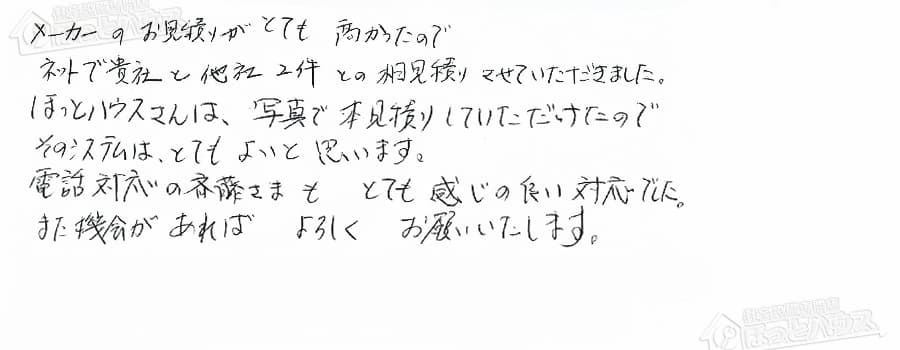 メーカーのお見積りがとても高かったので
ネットで貴社と他社2件との相見積りさせていただきました。
ほっとハウスさんは、写真で本見積りしていただけたので
そのシステムは、とてもよいと思います。
電話対応の斉藤さまもとても感じの良い対応でした。
また機会があればよろしくお願いいたします。
ほっとハウス